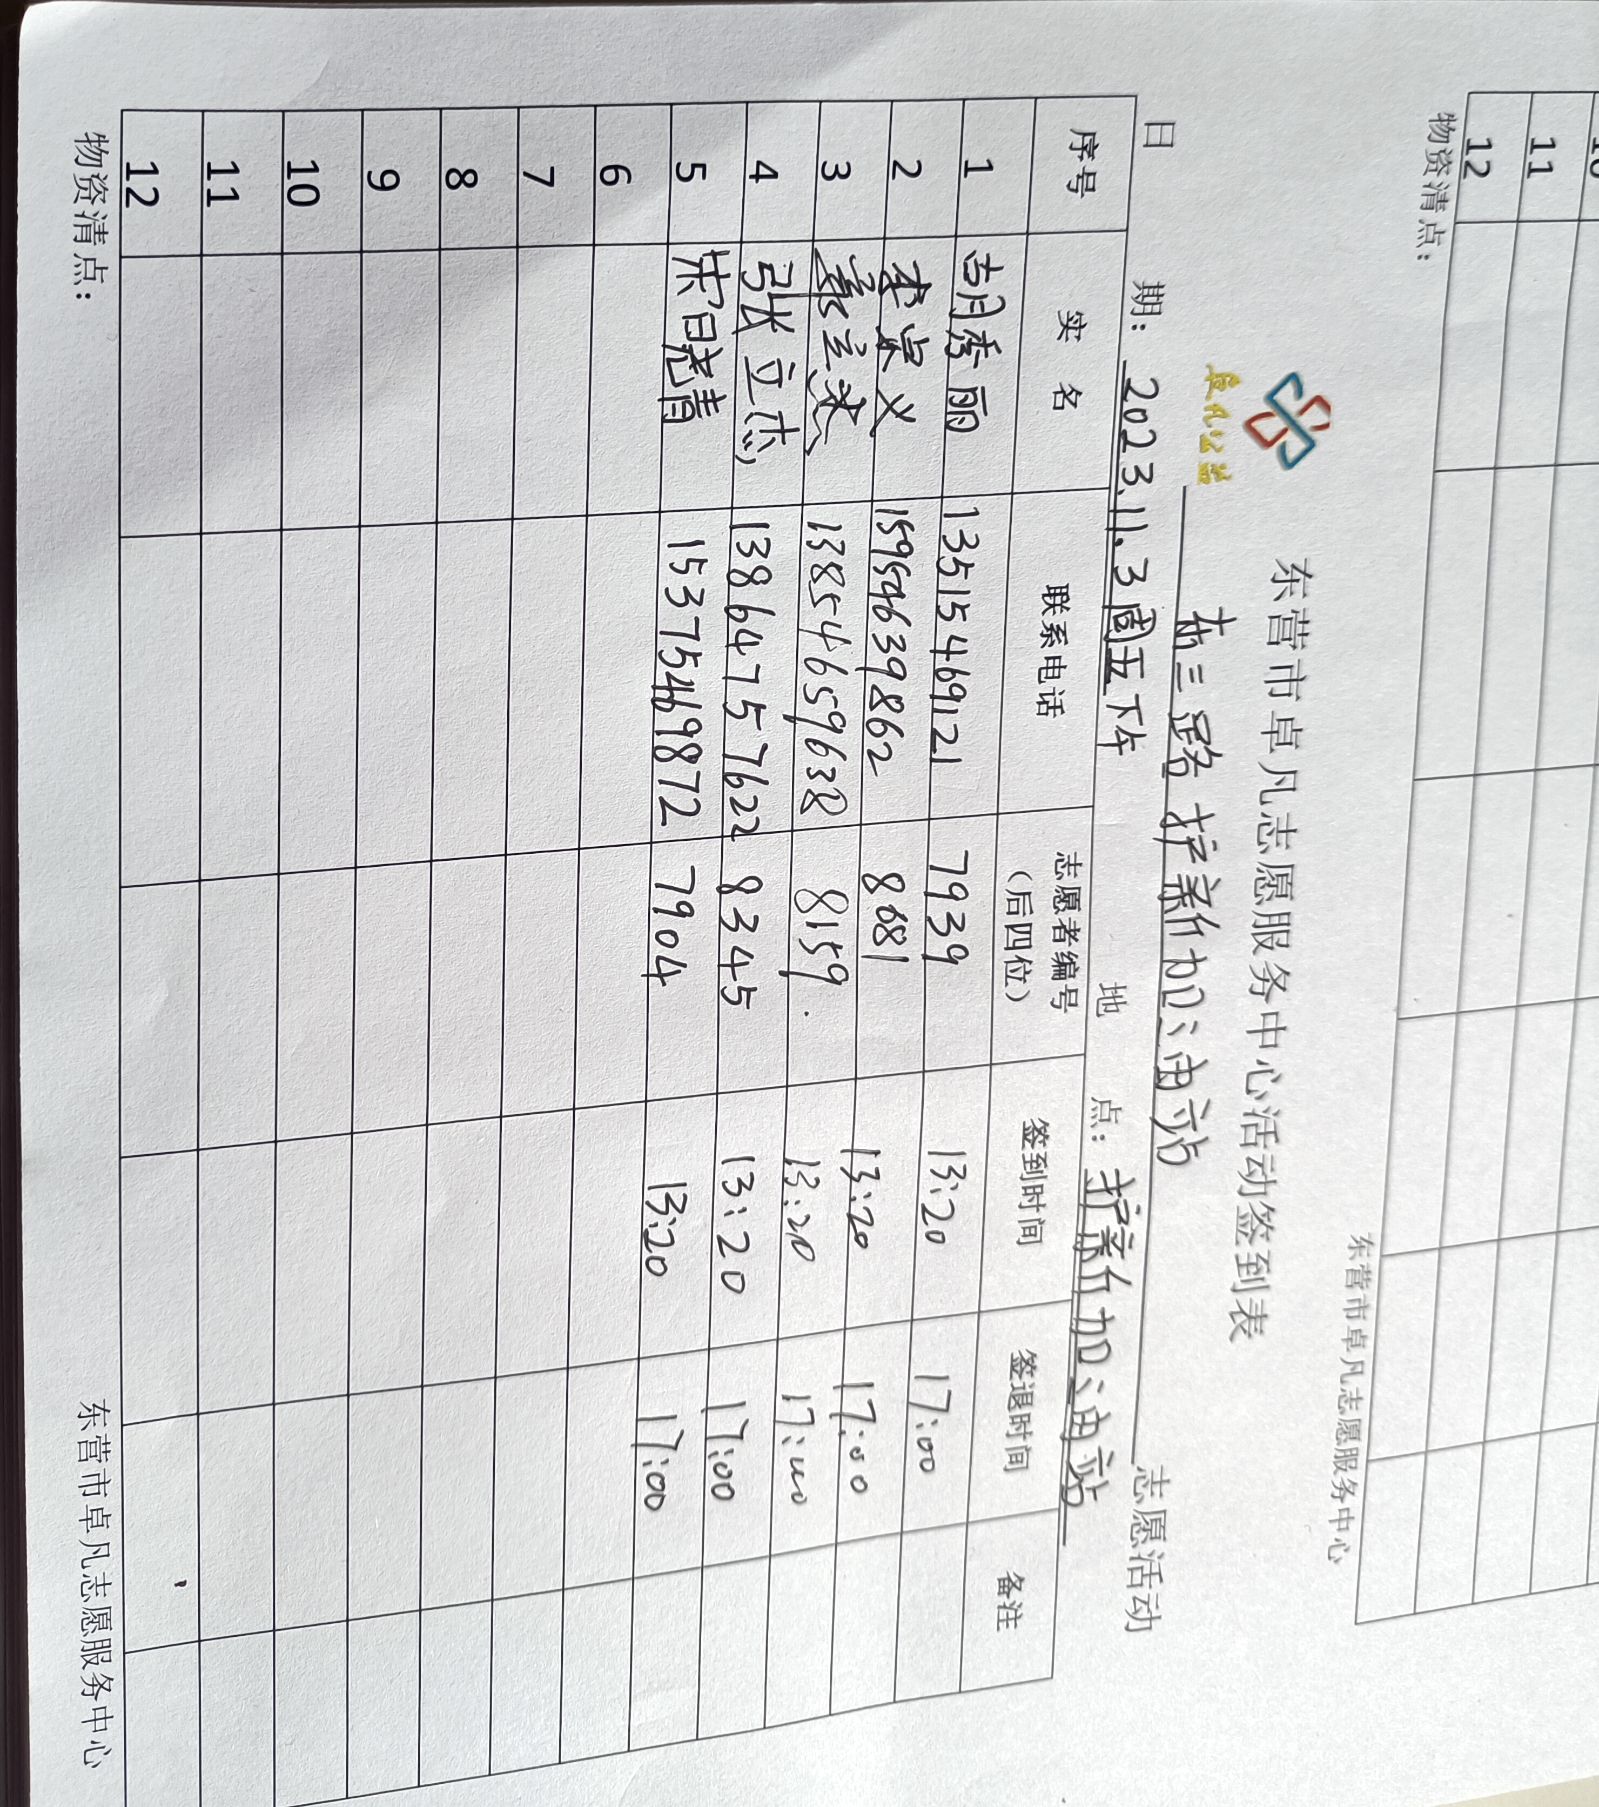 12
物资清点：
东营市卓凡志愿服务中心
卓凡公益
东营市卓凡志愿服务中心活动签到表
东三路护新加油站志愿活动
日 期：2023.11.3周五下午 地 点：护新加油站
序号 实 名 联系电话 志愿者编号（后四位） 签到时间 签退时间 备注
1 胡秀丽 13515469121 7939 13:20 17:00
2 李崇义 15954639862 8681 13:20 17:00
3 13854659638 8159. 13:20 17:00
4 张立志 13864757622 8345 13:20 17:00
5 宋晓青 15375469872 7904 13:20 17:00
6
7
8
9
10
11
12
物资清点：
东营市卓凡志愿服务中心